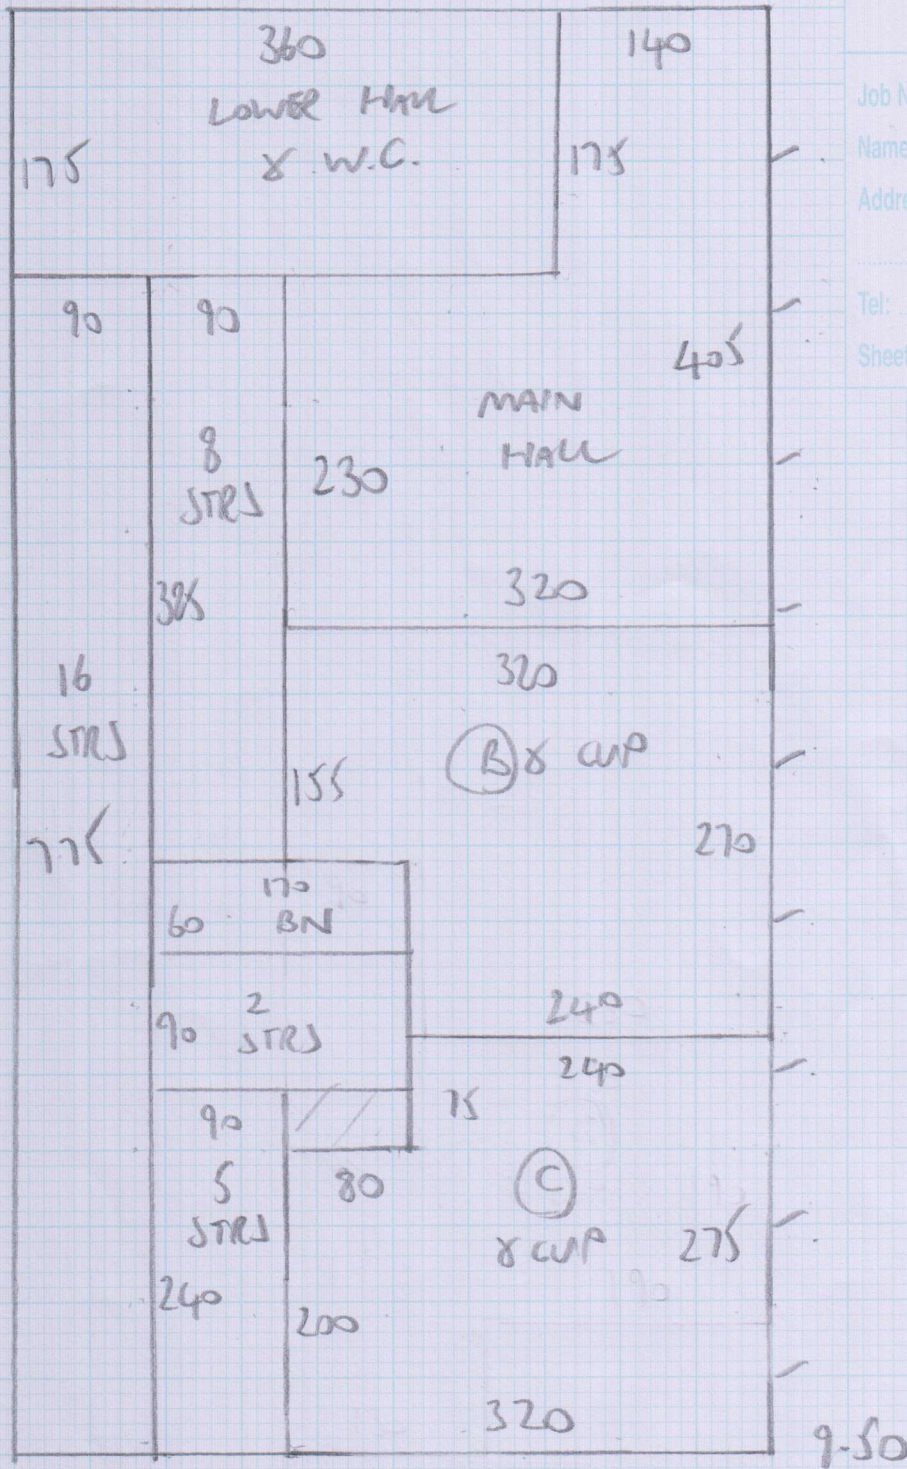 360
140
LOWER HALL
& W.C.
175
175
Job N
Name
Addre
Tel:
Sheet
90
90
405
MAIN
HALL
8
STRS
230
385
320
320
16
STRS
B & CUP
155
775
270
170
60 BN
240
90 2
STRS
240
90
75
5
STRS
80
C
& CUP
275
240
200
320
9.50